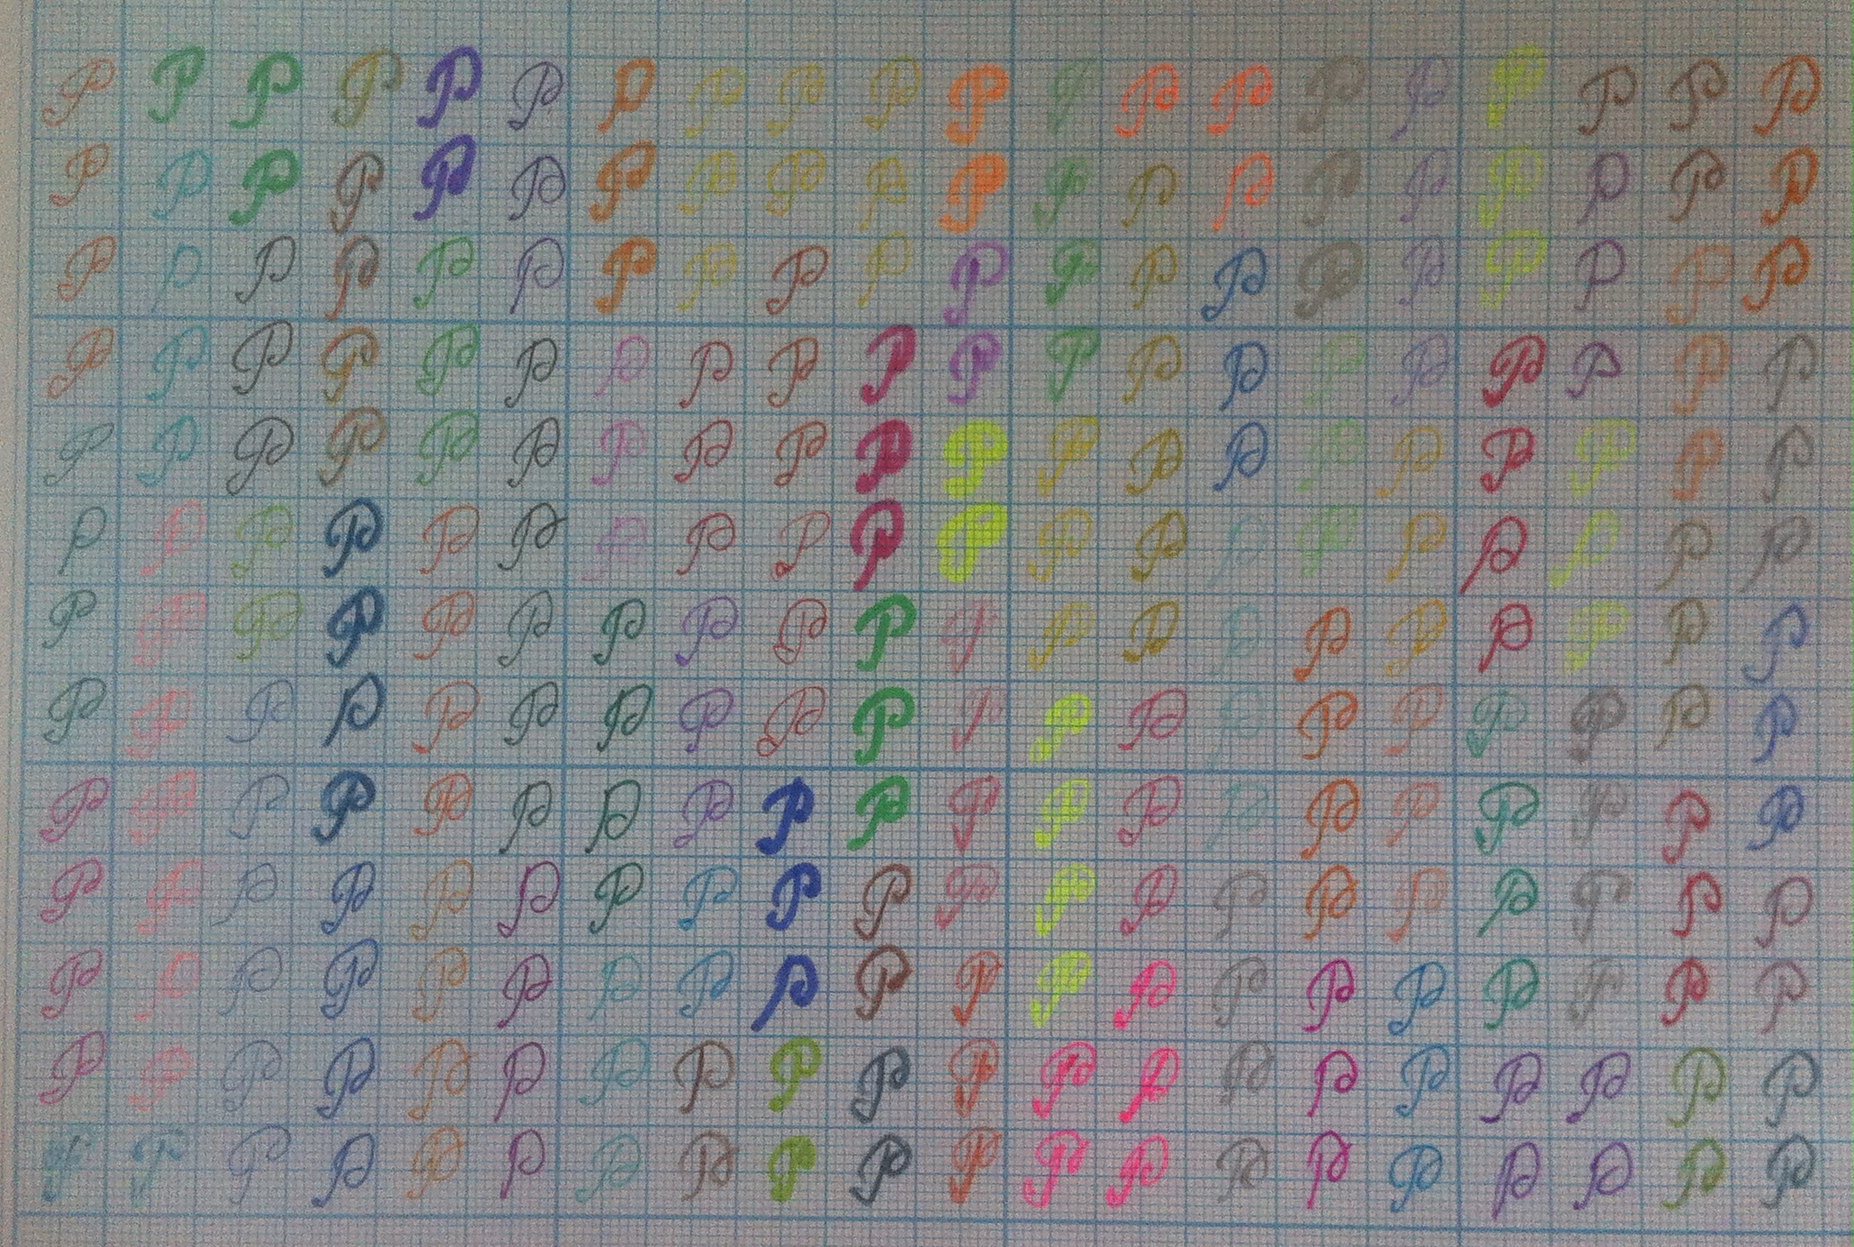 P P P P P P P P P P P P P P P P P P P P
P P P P P P P P P P P P P P P P P P P P
P P P P P P P P P P P P P P P P P P P P
P P P P P P P P P P P P P P P P P P P P
P P P P P P P P P P P P P P P P P P P P
P P P P P P P P P P P P P P P P P P P P
P P P P P P P P P P P P P P P P P P P P
P P P P P P P P P P P P P P P P P P P P
P P P P P P P P P P P P P P P P P P P P
P P P P P P P P P P P P P P P P P P P P
P P P P P P P P P P P P P P P P P P P P
P P P P P P P P P P P P P P P P P P P P
P P P P P P P P P P P P P P P P P P P P